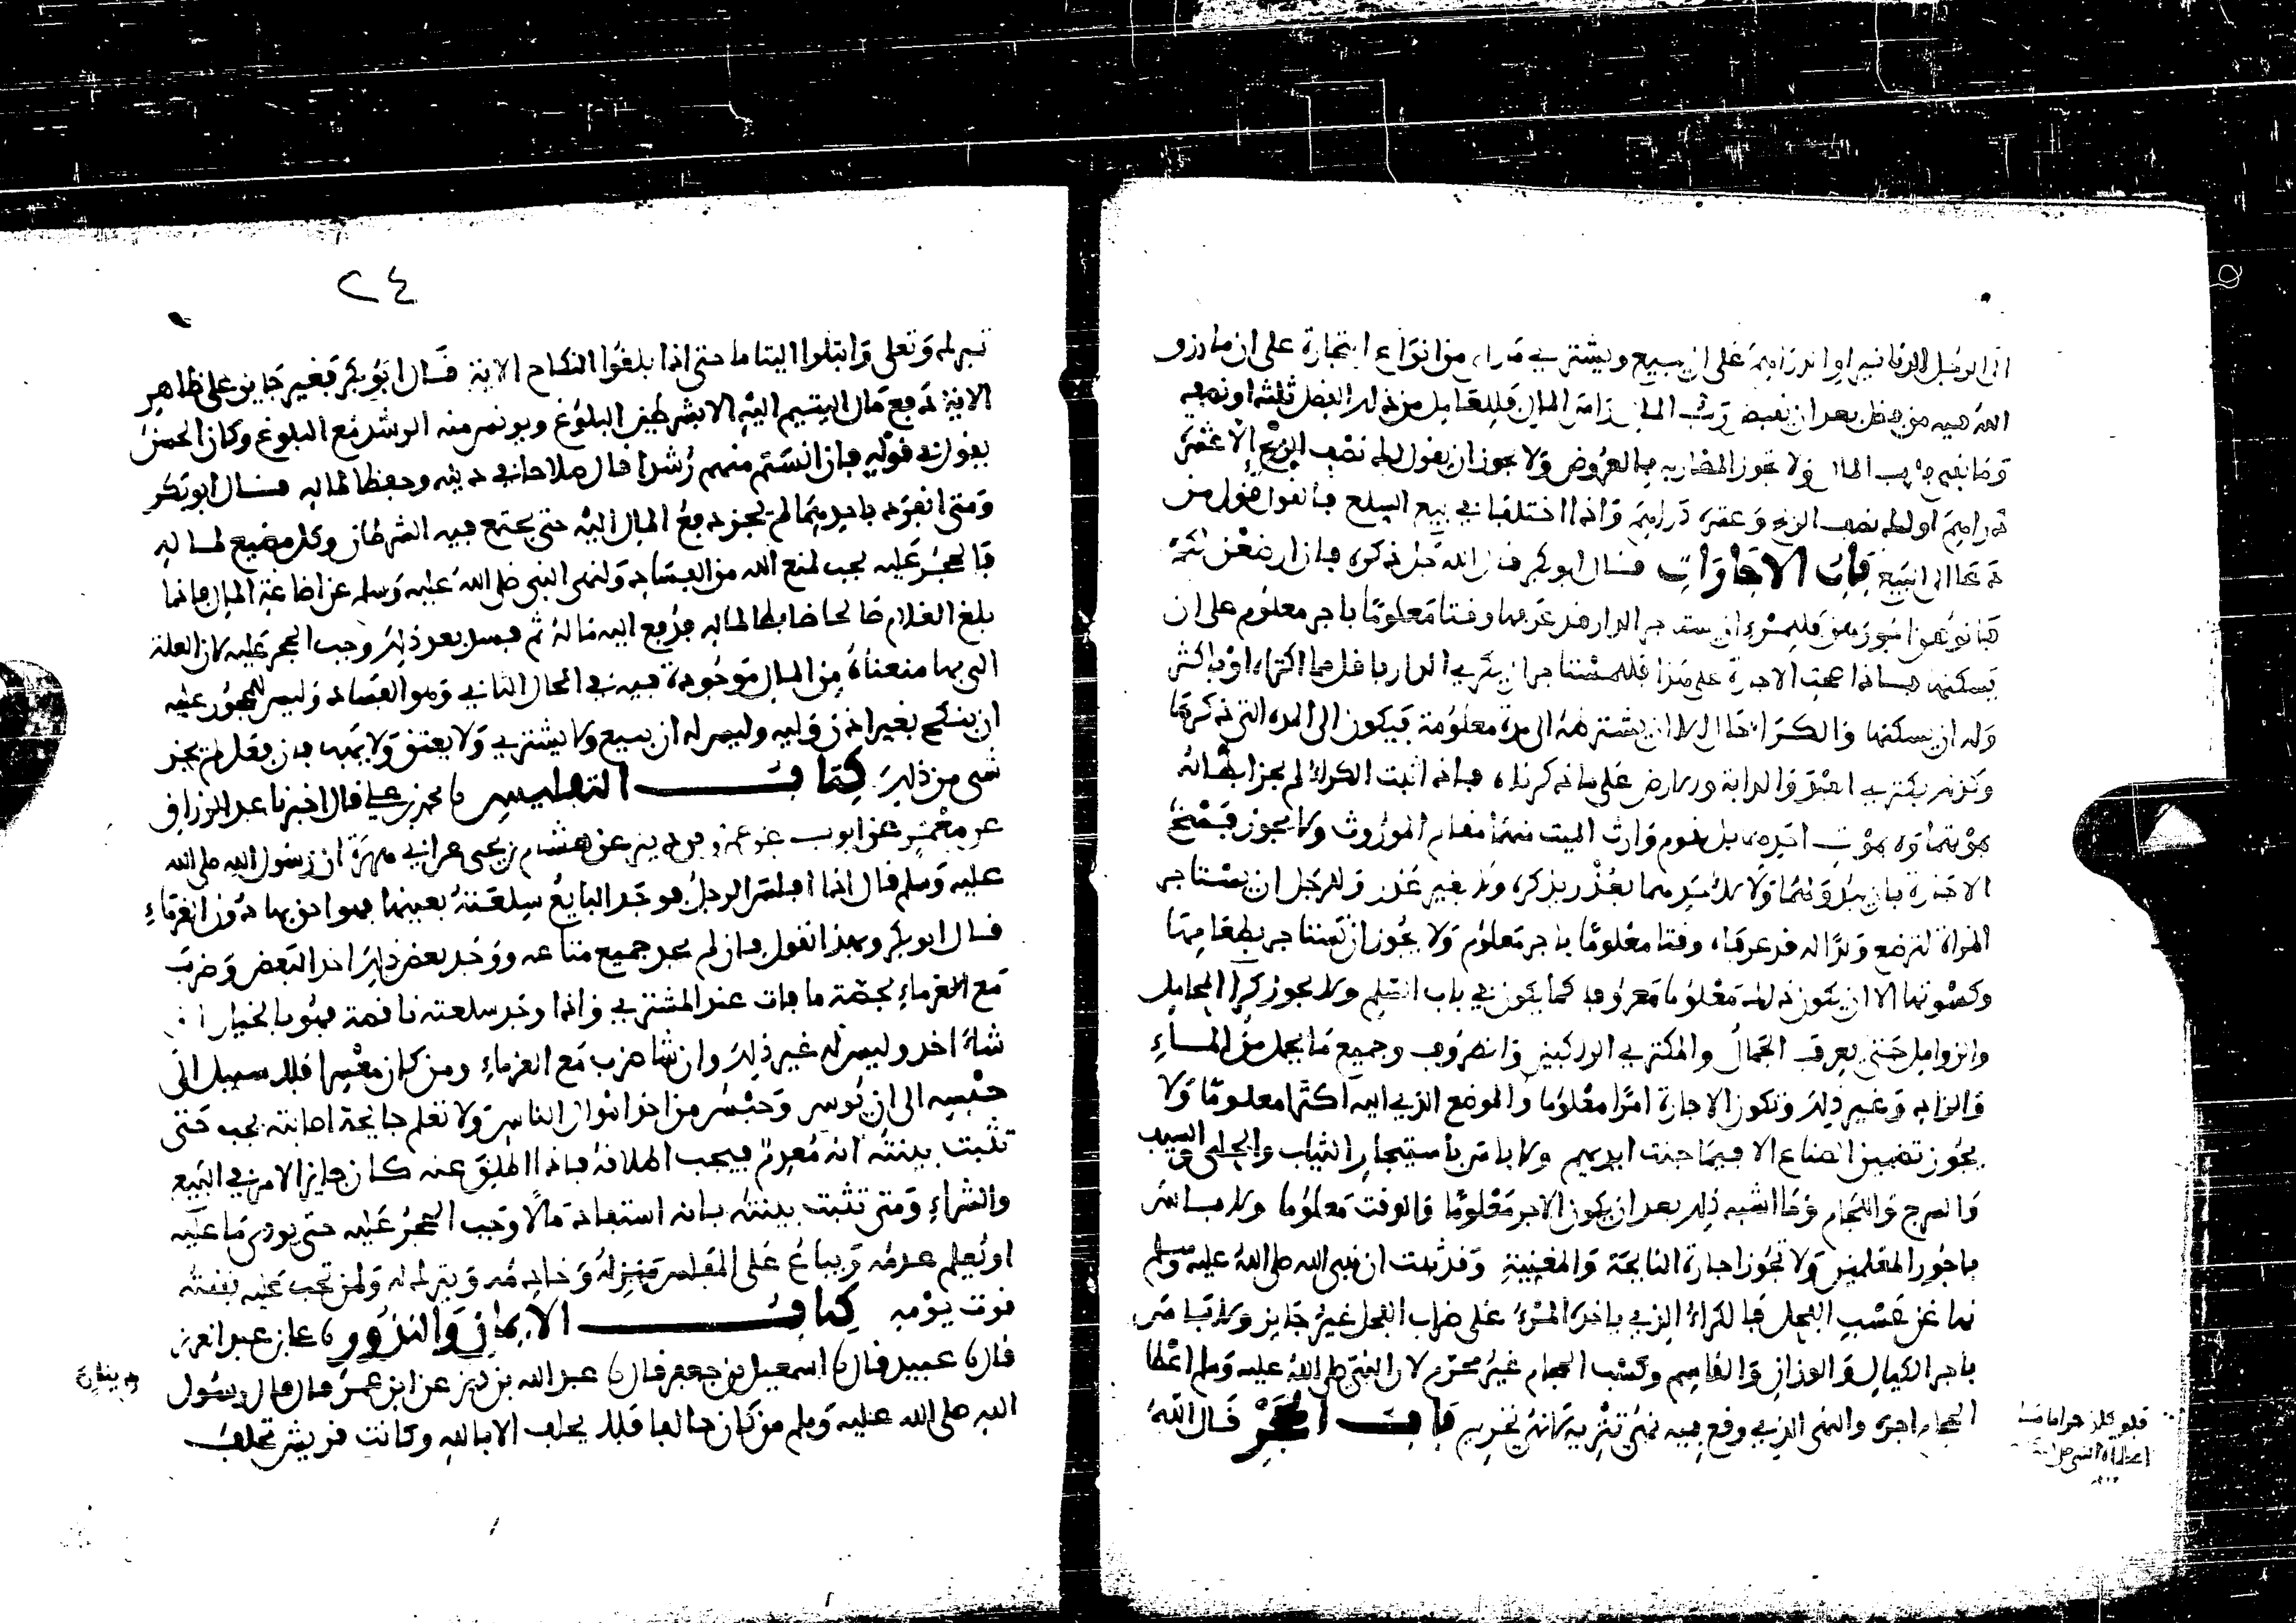 الى الرجل الدنانير او الدراهم على ان يبيع ويشتري ما راى من انواع التجارة على ان ما رزق
الله فيه من فضل بعد ان يقبض رب المال راس المال فللعامل من ذلك الفضل ثلثه او نصفه
وما بقي فلرب المال ولا تجوز المضاربة بالعروض ولا يجوز ان يقول لك نصف الربح الا عشرة
دراهم او لك نصف الربح وعشرة دراهم واذا اختلفا في بيع السلع فالقول قول من
دعا الى البيع باب الاجارات قال ابو بكر قال الله جل ذكره فان ارضعن لكم
فاتوهن اجورهن فللمرء ان يستاجر الدار قد عرفها وقتا معلوما باجر معلوم على ان
يسكنها فاذا صحت الاجارة على هذا فللمستاجر ان يكري الدار باقل مما اكتراه او باكثر
وله ان يسكنها والكراء حال الا ان يشترطه الى مدة معلومة فيكون الى المدة التي ذكرها
وكذلك يكتري العبد والدابة والارض على ما ذكرناه فاذا ثبت الكراء لم يجز ابطاله
بموتهما ولا بموت احدهما بل يقوم وارث الميت منهما مقام الموروث ولا يجوز فسخ
الاجارة ولا لاحد منهما بعذر يذكره ولا بغير عذر وللرجل ان يستاجر
المراة لترضع ولدا له قد عرفاه وقتا معلوما باجر معلوم ولا يجوز ان يستاجر بطعامها
وكسوتها الا ان يكون ذلك معلوما معروفا كما يكون في باب السلم ولا يجوز كرا المحامل
والزوامل حتى يعرف الجمال والمكتري الراكبين والظروف وجميع ما يحمل من الماء
والزاد وغير ذلك وتكون الاجارة امرا معلوما والموضع الذي اليه اكترا معلوما ولا
يجوز تضمين الصناع الا فيما جنت ايديهم ولا باس باستيجار الثياب والحلي والسيف
والسرج واللجام وما اشبه ذلك بعد ان يكون الاجر معلوما والوقت معلوما ولا باس
باجور المعلمين ولا تجوز اجارة النايحة والمغنية وقد ثبت ان نبي الله صلى الله عليه وسلم
نها عن عسب الفحل فالكراء الذي ياخذ المرء على ضراب الفحل غير جايز ولا باس
باجر الكيال والوزان والقاسم وكسب الحجام غير محرم لان النبي صلى الله عليه وسلم اعطا
الحجام اجره والنهي الذي وقع فيه نهي تنزيه لا نهي تحريم باب الحجر قال الله
فلو كان حراما ما
اعطاه النبي صلى الله
٢٤
تبرك وتعلى وابتلوا اليتاما حتى اذا بلغوا النكاح الاية قال ابو بكر فغير جايز على ظاهر
الاية دفع مال اليتيم اليه الا بشرطين البلوغ ويونس منه الرشد مع البلوغ وكان الحسن
يقول في قوله فان انستم منهم رشدا قال صلاحا في دينه وحفظا لماله قال ابو بكر
ومتى انفرد باحديهما لم يجز دفع المال اليه حتى يجتمع فيه الشرطان وكل مضيع لماله
فالحجر عليه يجب لمنع الله من الفساد ولنهي النبي صلى الله عليه وسلم عن اضاعة المال فاذا
بلغ الغلام صالحا ضابطا لماله فدفع اليه ماله ثم فسد بعد ذلك وجب الحجر عليه لان العلة
التي بها منعناه من المال موجودة فيه في الحال الثاني وهو الفساد وليس للمحجور عليه
ان ينكح بغير اذن وليه وليس له ان يبيع ولا يشتري ولا يعتق ولا يهب فان فعل لم يجز
شي من ذلك كتاب التفليس محمد بن علي قال اخبرنا عبد الرزاق
عن معمر عن ايوب عن عمرو بن دينر عن هشام بن يحيى عن ابي هريرة ان رسول الله صلى الله
عليه وسلم قال اذا افلس الرجل فوجد البايع سلعته بعينها فهو احق بها دون الغرماء
قال ابو بكر وبهذا نقول فان لم يجد جميع متاعه ووجد بعض ذلك اخذ البعض وضرب
مع الغرماء بحصة ما فات عند المشتري واذا وجد سلعته ناقصة فهو بالخيار ان
شاء اخذ وليس له غير ذلك وان شا ضرب مع الغرماء ومن كان معسرا فلا سبيل الى
حبسه الى ان يوسر وحبس من اخذ اموال الناس ولا تعلم جايحة اصابته يجب حتى
تثبت بينته انه معدم فيجب اطلاقه فاذا اطلق عنه كان جايز الامر في البيع
والشراء ومتى تثبت بينته بانه استفاد مالا وجب الحجر عليه حتى يودي ما عليه
او يعلم عدمه ويباع على المفلس منزله وخادمه ويترك له ولمن تجب عليه نفقته
قوت يومه كتاب الايمان والنذور علي بن عبد العزيز
قال عبيد قال اسمعيل بن جعفر قال عبد الله بن دينر عن ابن عمر قال قال رسول
الله صلى الله عليه وسلم من كان حالفا فلا يحلف الا بالله وكانت قريش تحلف